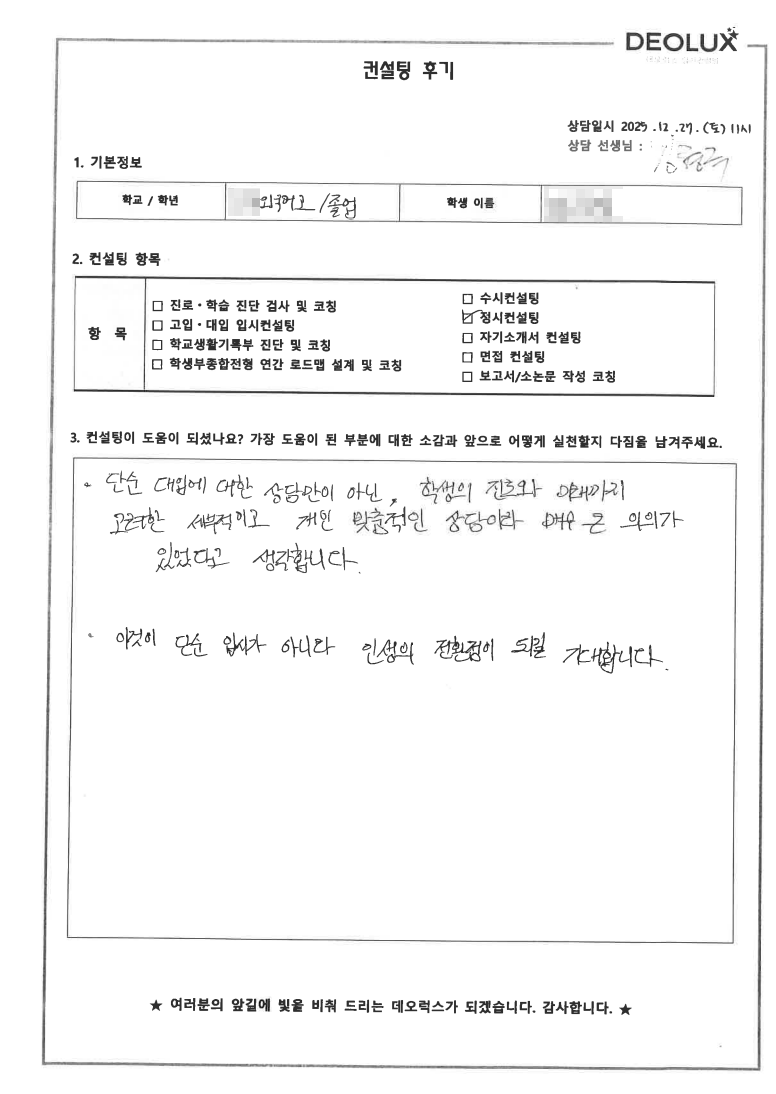 DEOLUX
컨설팅 후기
상담일시 2025.12.27.(토) 11시
상담 선생님 :
1. 기본정보
학교 / 학년 외국어고/졸업 학생 이름
2. 컨설팅 항목
항 목
□ 진로·학습 진단 검사 및 코칭
□ 고입·대입 입시컨설팅
□ 학교생활기록부 진단 및 코칭
□ 학생부종합전형 연간 로드맵 설계 및 코칭
□ 수시컨설팅
☑ 정시컨설팅
□ 자기소개서 컨설팅
□ 면접 컨설팅
□ 보고서/소논문 작성 코칭
3. 컨설팅이 도움이 되셨나요? 가장 도움이 된 부분에 대한 소감과 앞으로 어떻게 실천할지 다짐을 남겨주세요.
• 단순 대입에 대한 상담만이 아닌, 학생의 진로와 미래까지
고려한 세부적이고 개인 맞춤적인 상담이라 매우 큰 의의가
있었다고 생각합니다.
• 이것이 단순 입시가 아니라 인생의 전환점이 되길 기대합니다.
★ 여러분의 앞길에 빛을 비춰 드리는 데오럭스가 되겠습니다. 감사합니다. ★